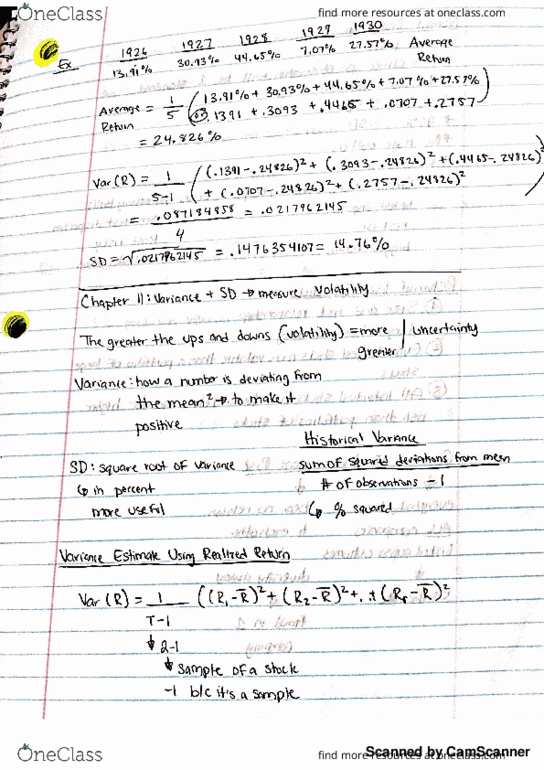 OneClass
find more resources at oneclass.com
Ex 1926 1927 1928 1929 1930
13.91% 30.93% 44.65% 7.07% 27.57% Average Return
Average Return = 1/5 (13.91% + 30.93% + 44.65% + 7.07% + 27.57%
.1391 + .3093 + .4465 + .0707 + .2757)
= 24.826%
Var(R) = 1/5-1 ((.1391-.24826)² + (.3093-.24826)² + (.4465-.24826)²
+ (.0707-.24826)² + (.2757-.24826)²)
= .087184858/4 = .0217962145
SD = √.0217962145 = .1476354107 = 14.76%
Chapter 11: Variance + SD → measure volatility
The greater the ups and downs (volatility) = more / greater uncertainty
Variance: how a number is deviating from
the mean² → to make it
positive
Historical Variance
SD: square root of variance
sum of squared deviations from mean
↳ in percent
# of observations - 1
more useful
↳ % squared
Variance Estimate Using Realized Return
Var (R) = 1/T-1 ((R₁-R̅)² + (R₂-R̅)² +..+ (Rₜ-R̅)²
↓ 2-1
↓ sample of a stock
-1 b/c it's a sample
Scanned by CamScanner
OneClass
find more resources at oneclass.com